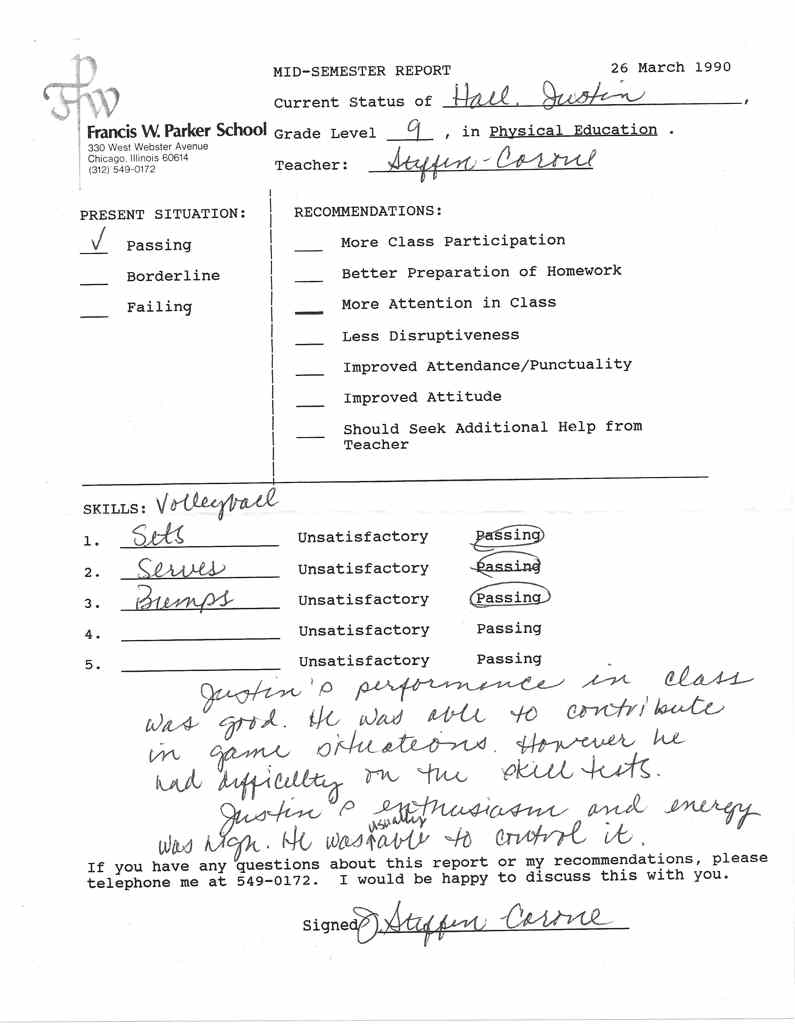 FWP
MID-SEMESTER REPORT 26 March 1990
Current Status of Hall, Justin,
Francis W. Parker School
330 West Webster Avenue
Chicago, Illinois 60614
(312) 549-0172
Grade Level 9, in Physical Education.
Teacher: Steffen-Corone
PRESENT SITUATION:
✓ Passing
Borderline
Failing
RECOMMENDATIONS:
More Class Participation
Better Preparation of Homework
More Attention in Class
Less Disruptiveness
Improved Attendance/Punctuality
Improved Attitude
Should Seek Additional Help from
Teacher
SKILLS: Volleyball
1. Sets Unsatisfactory Passing
2. Serves Unsatisfactory Passing
3. Bumps Unsatisfactory Passing
4. Unsatisfactory Passing
5. Unsatisfactory Passing
Justin's performance in class
was good. He was able to contribute
in game situations. However he
had difficulty on the skill tests.
Justin's enthusiasm and energy
was high. He was usually able to control it.
If you have any questions about this report or my recommendations, please
telephone me at 549-0172. I would be happy to discuss this with you.
Signed J. Steffen Corone